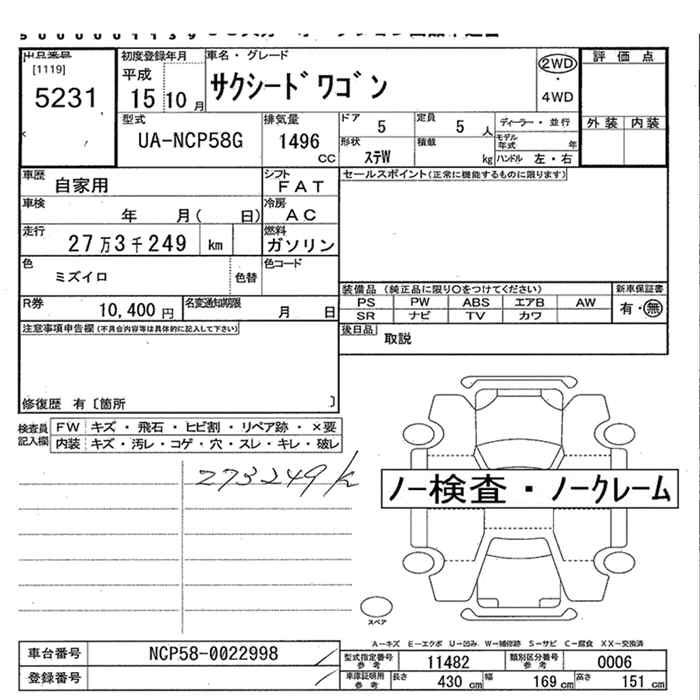 出品番号
[1119]
5231
初度登録年月
平成
15 10 月
車名・グレード
サクシードワゴン
2WD
4WD
評価点
外装 内装
型式
UA-NCP58G
排気量
1496
CC
ドア 5
定員 5 人
ディーラー・並行
モデル年式 年
形状 ステW
積載 kg
ハンドル 左・右
車歴
自家用
シフト
FAT
セールスポイント(正常に機能するものに限ります)
車検 年 月( 日)
冷房
AC
走行
27万3千249 km
燃料
ガソリン
色
ミズイロ
色替
色コード
R券
10,400 円
名変通知期限 月 日
装備品 (純正品に限り○をつけてください)
新車保証書
PS PW ABS エアB AW
有・無
SR ナビ TV カワ
注意事項申告欄(不具合内容等は具体的に記入して下さい)
後日品 取説
修復歴 有〔箇所 〕
検査員記入欄
FW キズ・飛石・ヒビ割・リペア跡・×要
内装 キズ・汚レ・コゲ・穴・スレ・キレ・破レ
273249k
ノー検査・ノークレーム
スペア
A-キズ E-エクボ U-凹み W-補修跡 S-サビ C-腐食 XX-交換済
車台番号 NCP58-0022998
型式指定番号参考 11482
類別区分番号参考 0006
登録番号
車庫証明用参考 長さ 430 cm 幅 169 cm 高さ 151 cm